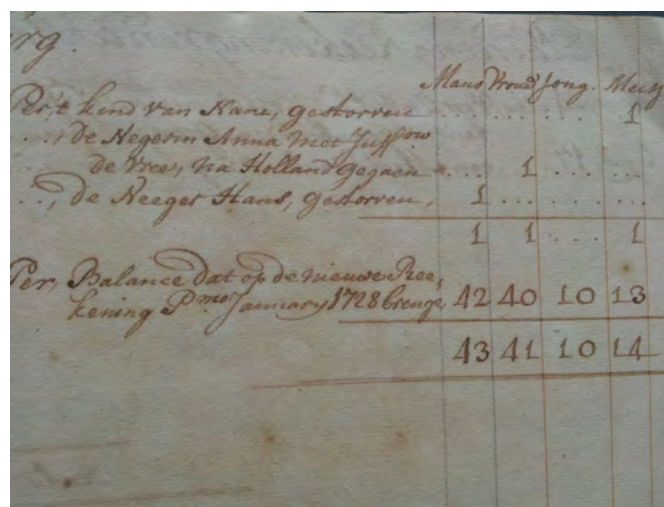 rg.
Mans Vrouws Jong. Meisj
Per, 't kind van Nani, gestorven . . . . . . . . . . 1
. . . , De Negerin Anna met Juffrow
de Vree, na Holland gegaen . . . 1 . . . . . .
. . . , de Neeger Hans, gestorven, 1 . . . . . . . . .
1 1 . . . . 1
Per, Balance dat op de nieuwe Ree,
kening Pmo January 1728 brenge, 42 40 10 13
43 41 10 14